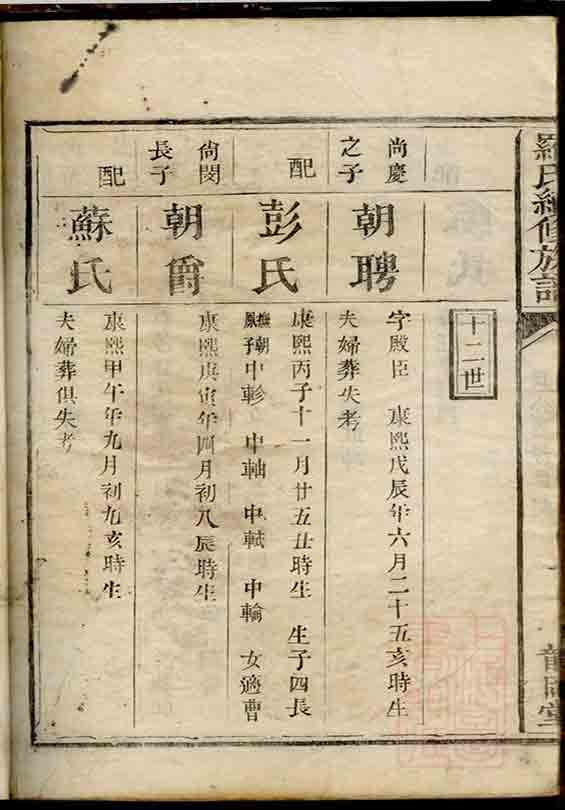 羅氏續修族譜
十二世
尚慶
之子
朝聘
字殿臣 康熙戊辰年六月二十五亥時生
夫婦葬失考
配
彭氏
康熙丙子十一月廿五丑時生 生子四長
撫朝
鳳子
中軫 中軸 中軾 中輪 女適曹
尙閔
長子
朝爵
康熙庚寅年四月初八辰時生
配
蘇氏
康熙甲午年九月初九亥時生
夫婦葬俱失考